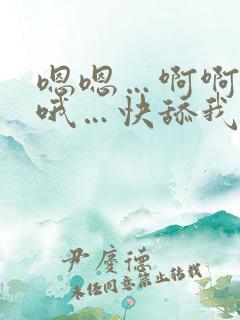 嗯嗯…啊啊
哦…快舔我
尹度德
未经同意禁止转载